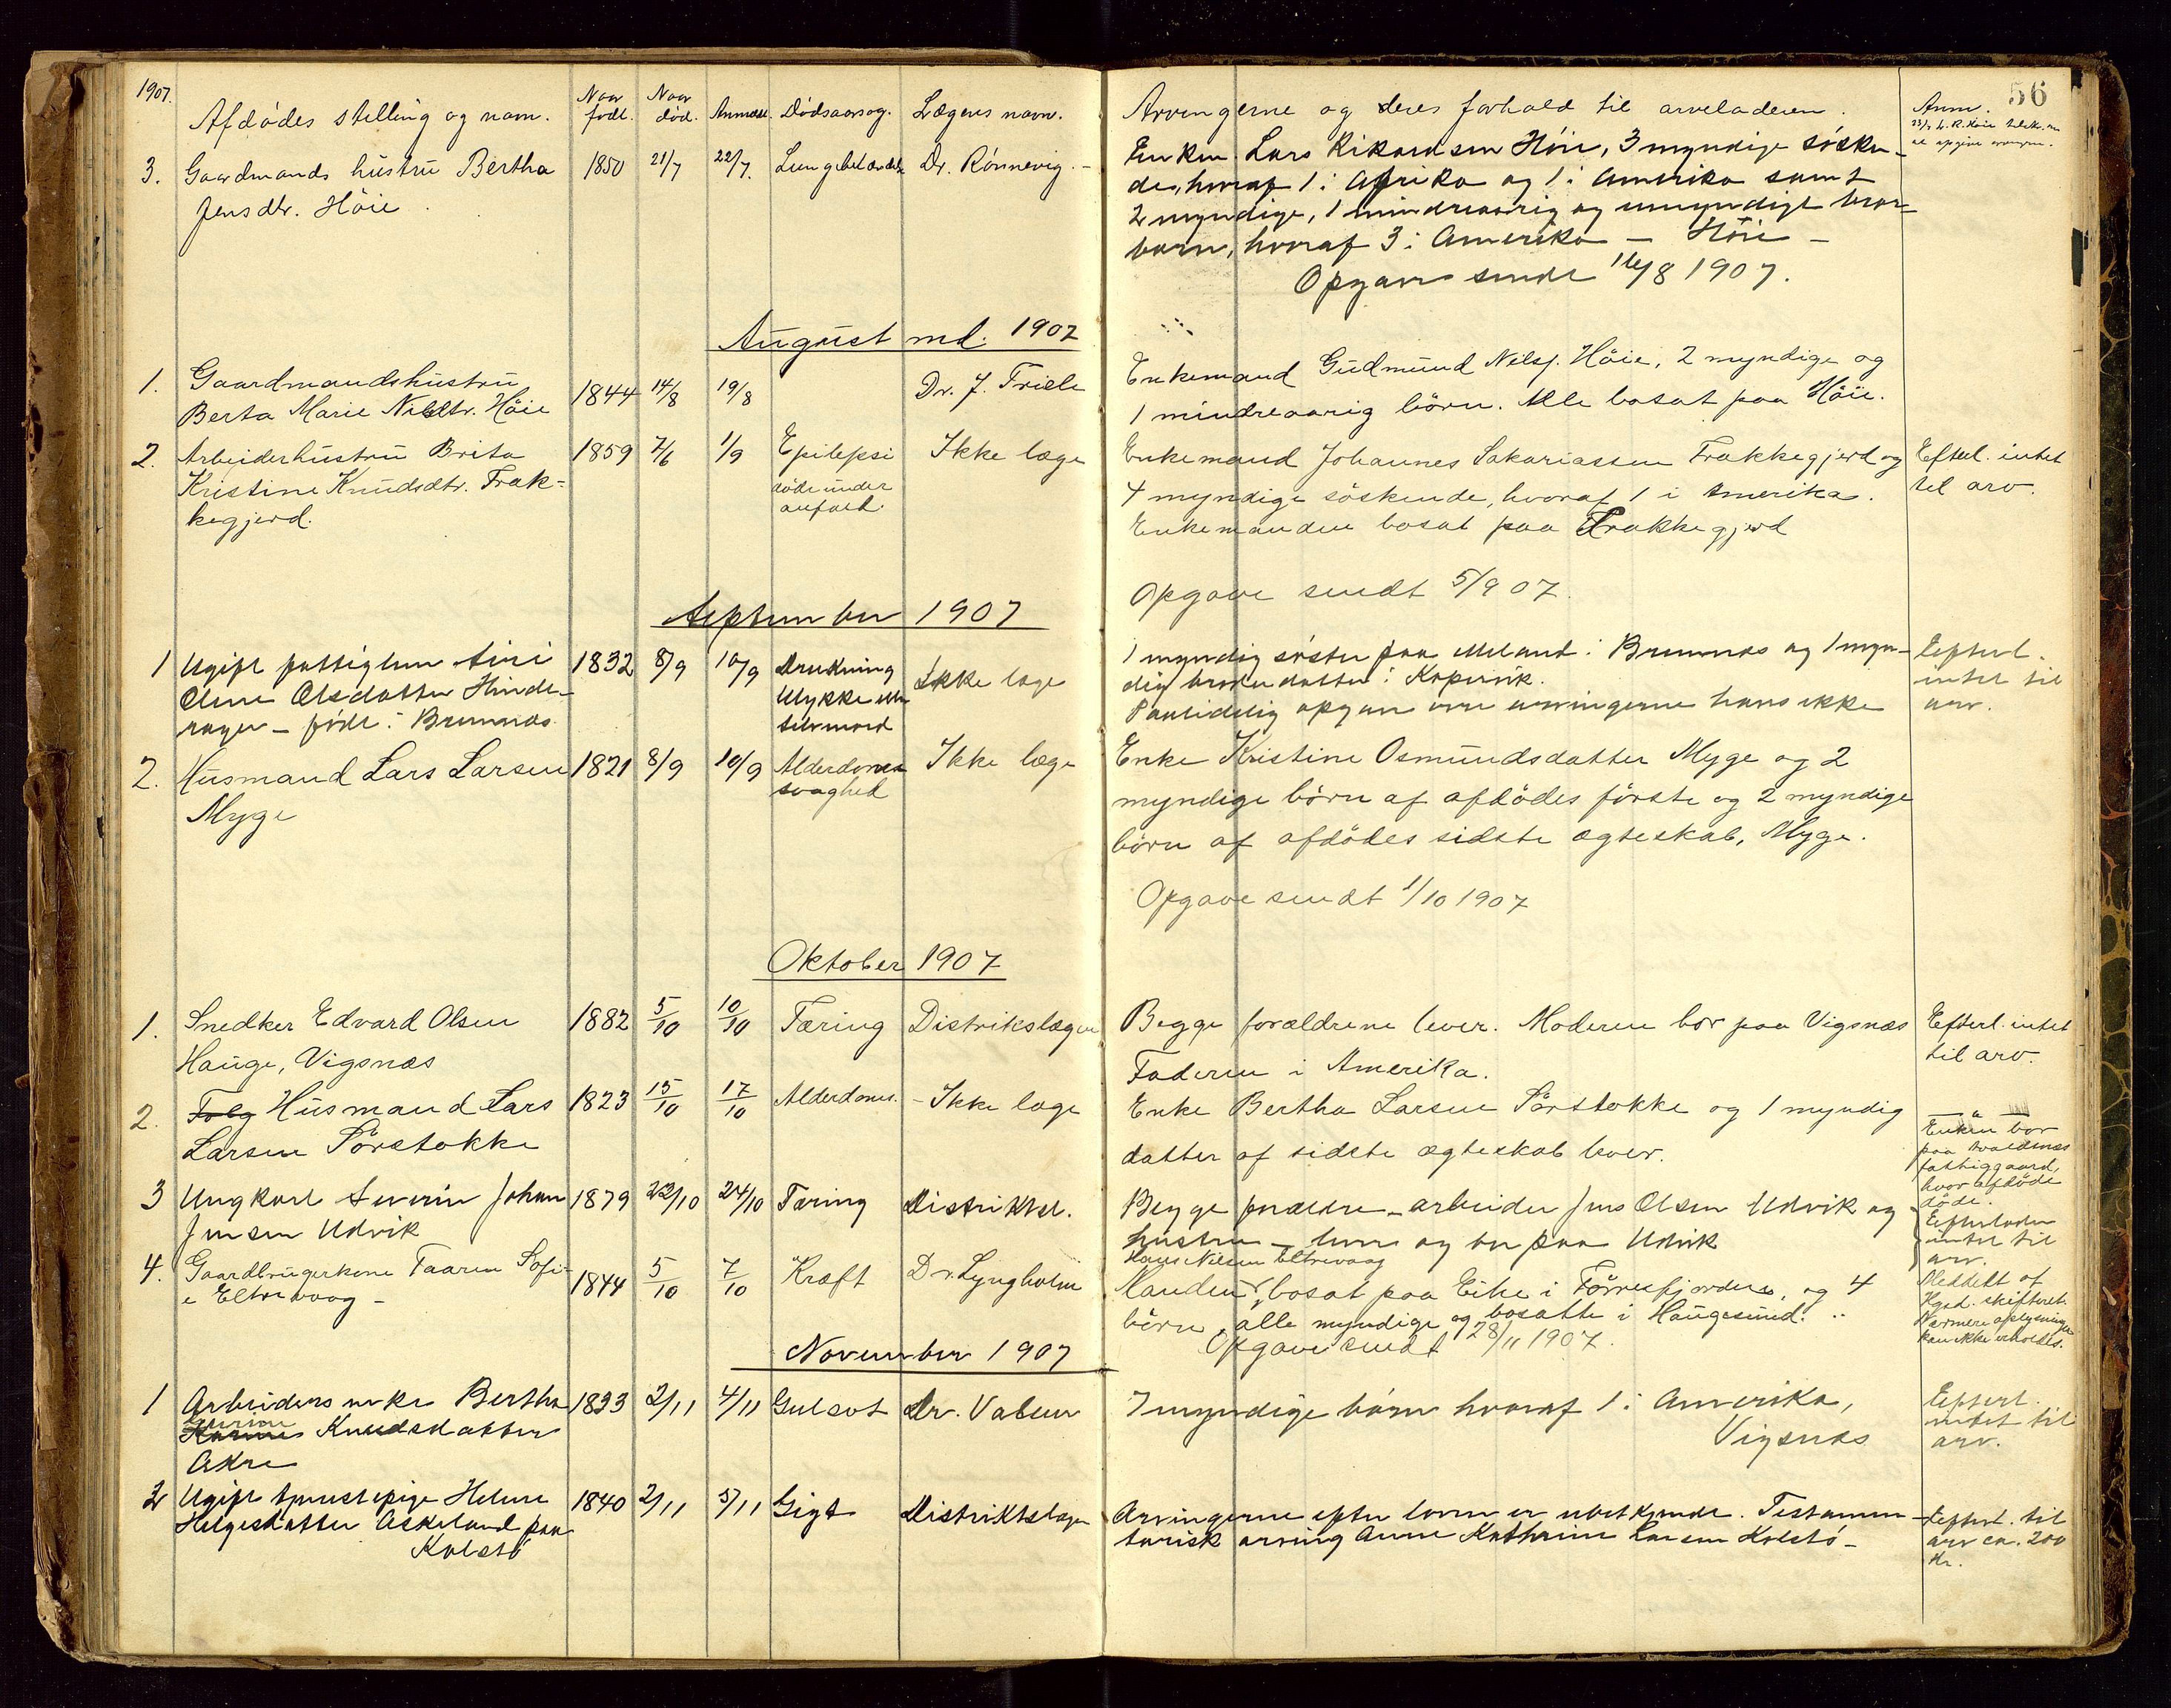 1907.
Afdødes stelling og navn.
Naar født.
Naar død.
Anmeldt.
Dødsaarsag.
Lægens navn.
Arvingerne og deres forhold til arveladeren.
Anm.
56
3. Gaardmands hustru Bertha 1850 21/7 22/7. Lungebetændelse Dr. Rønnevig. -
Jensdtr. Höie.
Enkem. Lars Rikardsen Höie, 3 myndige søsken-
de, hvoraf 1 i Afrika og 1 i Amerika samt
2 myndige, 1 mindreaarig og umyndigt bror-
barn, hvoraf 3 i Amerika — Höie —
Opgave sendt 16/8 1907.
August md. 1907
1. Gaardmandshustru
Berta Marie Nilsdtr. Höie 1844 14/8 19/8 Dr. J. Friele
Enkemand Gudmund Nilsg. Höie, 2 myndige og
1 mindreaarig börn. Alle bosat paa Höie.
2. Arbeiderhustru Brita 1859 7/6 1/9 Epilepsi Ikke læge
Kristine Knudsdtr. Frak- døde under
kegjerd. anfald.
Enkemand Johannes Sakariassen Frakkegjerd og
4 myndige söskende, hvoraf 1 i Amerika.
Enkemanden bosat paa Frakkegjerd
Efterl. intet
til arv.
Opgave sendt 5/9 07.
September 1907
1 Ugift fattiglem Siri 1832 8/9 10/9 Drukning Ikke læge
Oline Olsdatter Hinde- Ulykke eller
rager - född i Bremnæs selvmord
1 myndig søster paa Meland i Bremnes og 1 myn-
dig broderdatter i Kopervik.
Paalidelig opgave over arvingerne haves ikke
Efterl.
intet til
arv.
2. Husmand Lars Larsen 1821 8/9 10/9 Alderdoms Ikke læge
Myge svaghed
Enke Kristine Osmundsdatter Myge og 2
myndige börn af afdödes förste og 2 myndige
börn af afdödes sidste ægteskab, Myge.
Opgave sendt 1/10 1907
Oktober 1907
1. Snedker Edvard Olsen 1882 5/10 10/10 Tæring Distriktslægen
Hauge, Vigsnæs
Begge forældrene lever. Moderen bor paa Vigsnæs
Faderen i Amerika.
Efterl. intet
til arv.
2. Husmand Lars 1823 15/10 17/10 Alderdoms. - Ikke læge
Larsen Sörstokke
Enke Bertha Larsen Sörstokke og 1 myndig
datter af sidste ægteskab lever.
— " —
Enken bor
paa Avaldsnes
fattiggaard,
hvor afdöde
döde.
3 Ungkarl Severin Johan 1879 22/10 24/10 Tæring Distriktsl.
Jensen Udvik
Begge forældre - arbeider Jens Olsen Udvik og
hustru - lever og bor paa Udvik
Efterlader
intet til
arv.
4. Gaardbrugerkone Taaren Sofi- 1844 5/10 7/10 Kræft Dr. Lyngholm
e Eltrevaag -
Hans Nilsen Eltrevaag
Manden bosat paa Eike i Förresfjorden, og 4
börn, alle myndige og bosatte i Haugesund.
Opgave sendt 28/11 1907.
Meddelt af
Hgsd. skifteret.
Nærmere oplysninger
kan ikke erholdes.
November 1907
1 Arbeiders enke Bertha 1833 2/11 4/11 Gulsot Dr. Valeur
Knudsdatter
Akre
7 myndige børn hvoraf 1 i Amerika,
Vigsnæs
Efterl.
intet til
arv.
2 Ugift tjenestepige Helene 1840 2/11 5/11 Gigt Distriktslægen
Helgesdatter Askeland paa
Kolstö
Arvingerne efter loven er ubekjendt. Testamen-
tarisk arving Anne Kathrine Larsen Kolstö -
Efterl. til
arv ca. 200
kr.